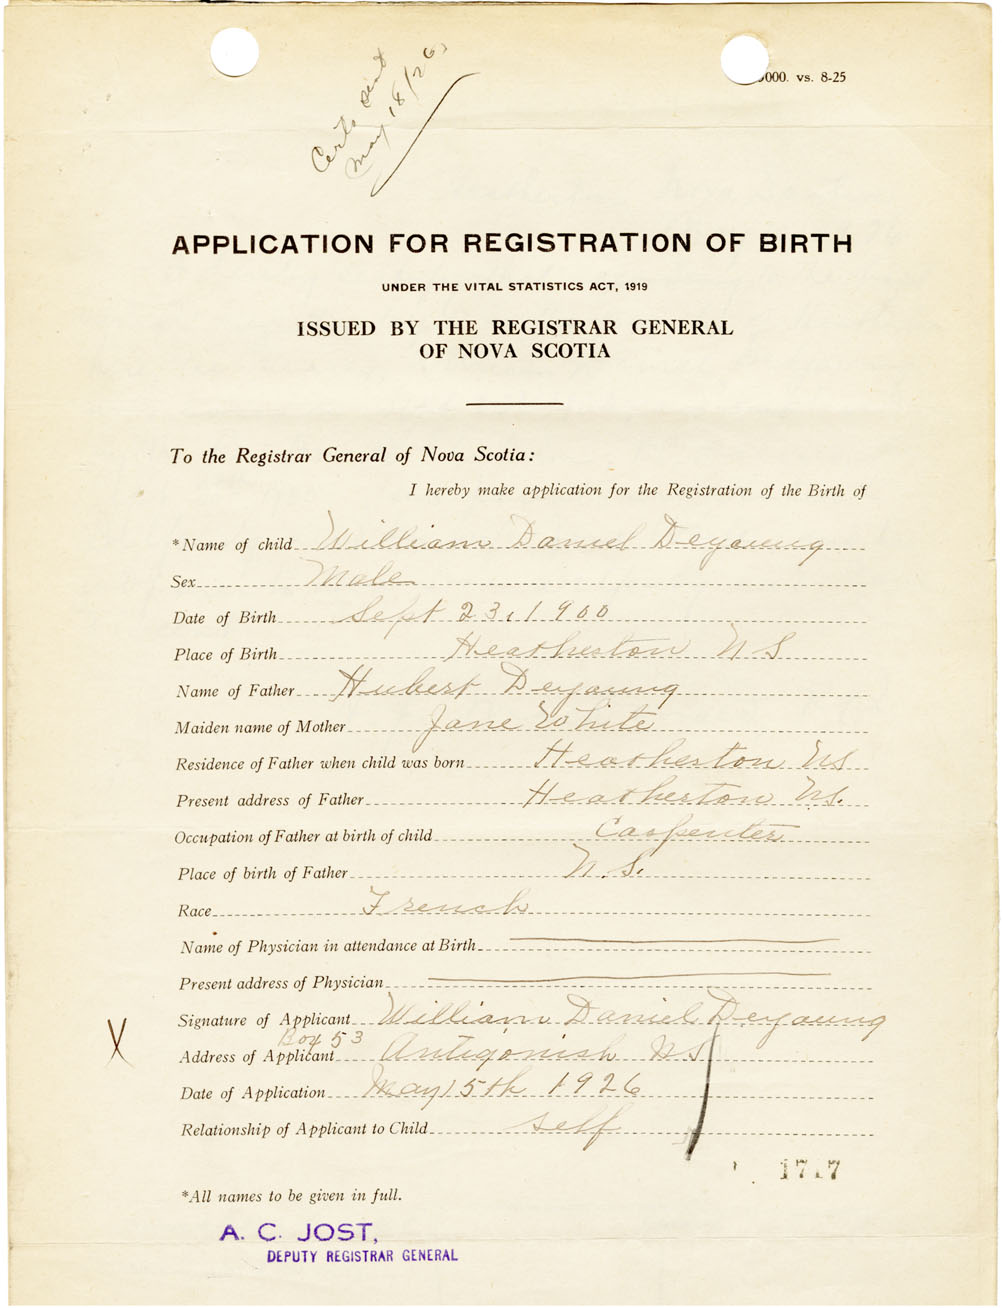 Certs sent
May 18/26
000. vs. 8-25
APPLICATION FOR REGISTRATION OF BIRTH
UNDER THE VITAL STATISTICS ACT, 1919
ISSUED BY THE REGISTRAR GENERAL
OF NOVA SCOTIA
To the Registrar General of Nova Scotia:
I hereby make application for the Registration of the Birth of
*Name of child William Daniel Deyoung
Sex Male
Date of Birth Sept 23, 1900
Place of Birth Heatherton NS
Name of Father Hubert Deyoung
Maiden name of Mother Jane White
Residence of Father when child was born Heatherton NS
Present address of Father Heatherton NS.
Occupation of Father at birth of child Carpenter
Place of birth of Father N.S.
Race French
Name of Physician in attendance at Birth
Present address of Physician
Signature of Applicant William Daniel Deyoung
Box 53
Address of Applicant Antigonish NS
Date of Application May 15th 1926
Relationship of Applicant to Child self
*All names to be given in full.
A. C. JOST,
DEPUTY REGISTRAR GENERAL